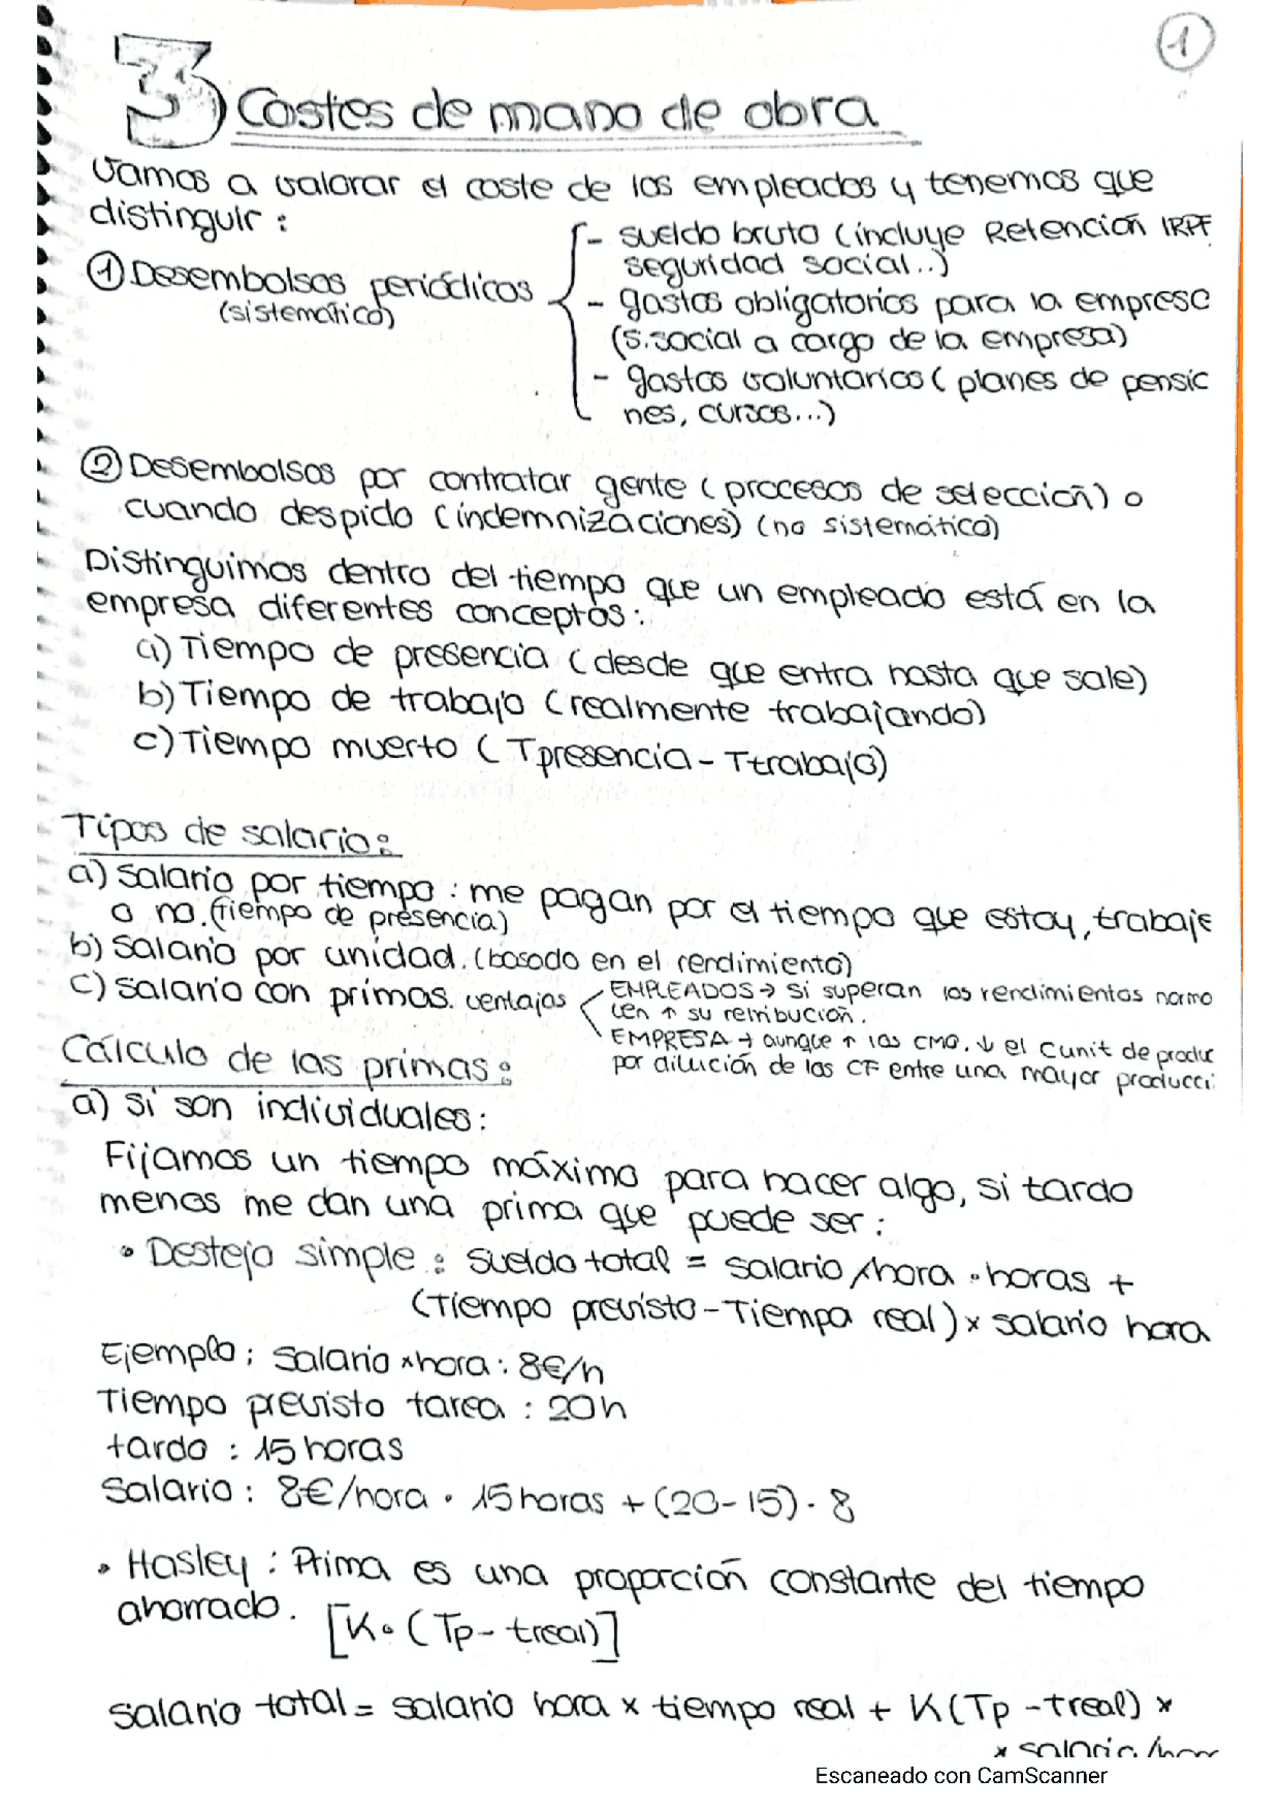 1
3 Costes de mano de obra
Vamos a valorar el coste de los empleados y tenemos que
distinguir:
① Desembolsos periódicos
(sistemático)
- sueldo bruto (incluye Retención IRPF
seguridad social..)
- gastos obligatorios para la empresa
(S.social a cargo de la empresa)
- gastos voluntarios (planes de pensio
nes, cursos...)
② Desembolsos por contratar gente (procesos de selección) o
cuando despido (indemnizaciones) (no sistemático)
Distinguimos dentro del tiempo que un empleado está en la
empresa diferentes conceptos:
a) Tiempo de presencia (desde que entra hasta que sale)
b) Tiempo de trabajo (realmente trabajando)
c) Tiempo muerto (Tpresencia - Ttrabajo)
Tipos de salario:
a) Salario por tiempo: me pagan por el tiempo que estoy, trabaje
o no. (Tiempo de presencia)
b) Salario por unidad. (basado en el rendimiento)
c) Salario con primas. ventajas
EMPLEADOS → si superan los rendimientos norma
len ↑ su retribución.
EMPRESA → aunque ↑ los CMO, ↓ el Cunit de produc
por dilución de los CF entre una mayor producci
Cálculo de las primas:
a) Si son individuales:
Fijamos un tiempo máximo para hacer algo, si tardo
menos me dan una prima que puede ser:
• Destejo simple: Sueldo total = salario/hora · horas +
(Tiempo previsto - Tiempo real) x salario hora
Ejemplo: Salario x hora: 8€/h
Tiempo previsto tarea: 20h
tardo: 15 horas
Salario: 8€/hora · 15 horas + (20-15) · 8
• Hasley: Prima es una proporción constante del tiempo
ahorrado. [K·(Tp - treal)]
Salario total = salario hora x tiempo real + K(Tp - treal) x
x salario/hora
Escaneado con CamScanner